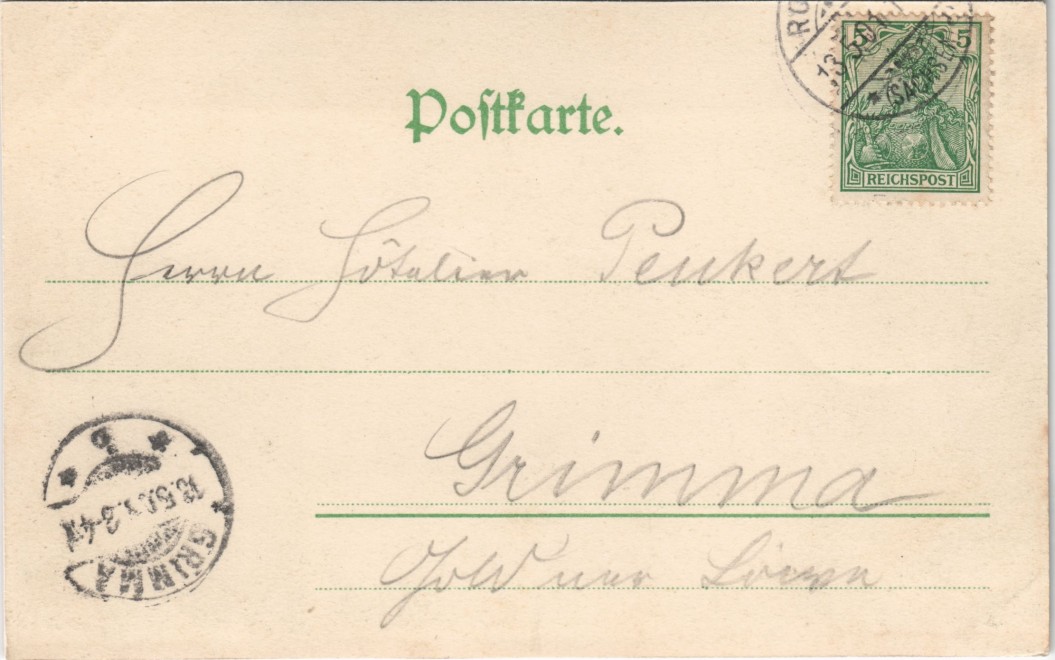 5 5
RO
13.5.01
* (SACHSEN)
REICHSPOST
Postkarte.
Herrn Hôtelier Penkert
Grimma
Goldner Löwe
* b *
13.5.01. 3-4N
GRIMMA